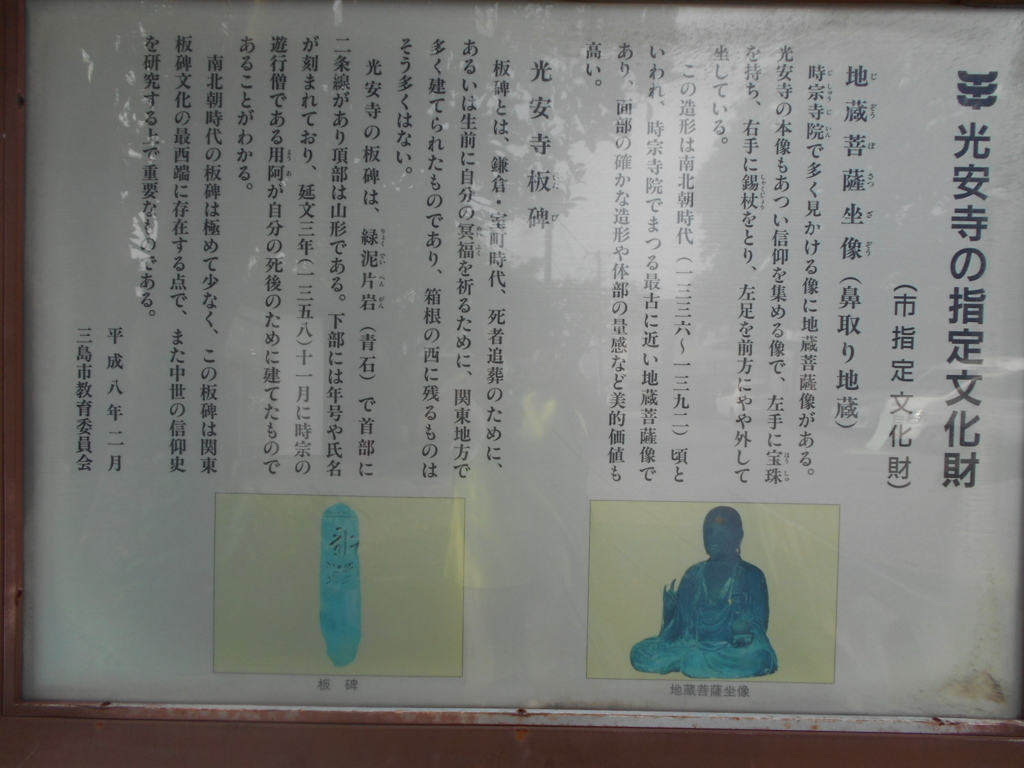 光安寺の指定文化財
（市指定文化財）
地蔵菩薩坐像（鼻取り地蔵）
時宗寺院で多く見かける像に地蔵菩薩像がある。
光安寺の本像もあつい信仰を集める像で、左手に宝珠
を持ち、右手に錫杖をとり、左足を前方にやや外して
坐している。
この造形は南北朝時代（一三三六〜一三九二）頃と
いわれ、時宗寺院でまつる最古に近い地蔵菩薩像で
あり、面部の確かな造形や体部の量感など美的価値も
高い。
光安寺板碑
板碑とは、鎌倉・室町時代、死者追葬のために、
あるいは生前に自分の冥福を祈るために、関東地方で
多く建てられたものであり、箱根の西に残るものは
そう多くはない。
光安寺の板碑は、緑泥片岩（青石）で首部に
二条線があり頂部は山形である。下部には年号や氏名
が刻まれており、延文三年（一三五八）十一月に時宗の
遊行僧である用阿が自分の死後のために建てたもので
あることがわかる。
南北朝時代の板碑は極めて少なく、この板碑は関東
板碑文化の最西端に存在する点で、また中世の信仰史
を研究する上で重要なものである。
平成八年二月
三島市教育委員会
地蔵菩薩坐像
板碑